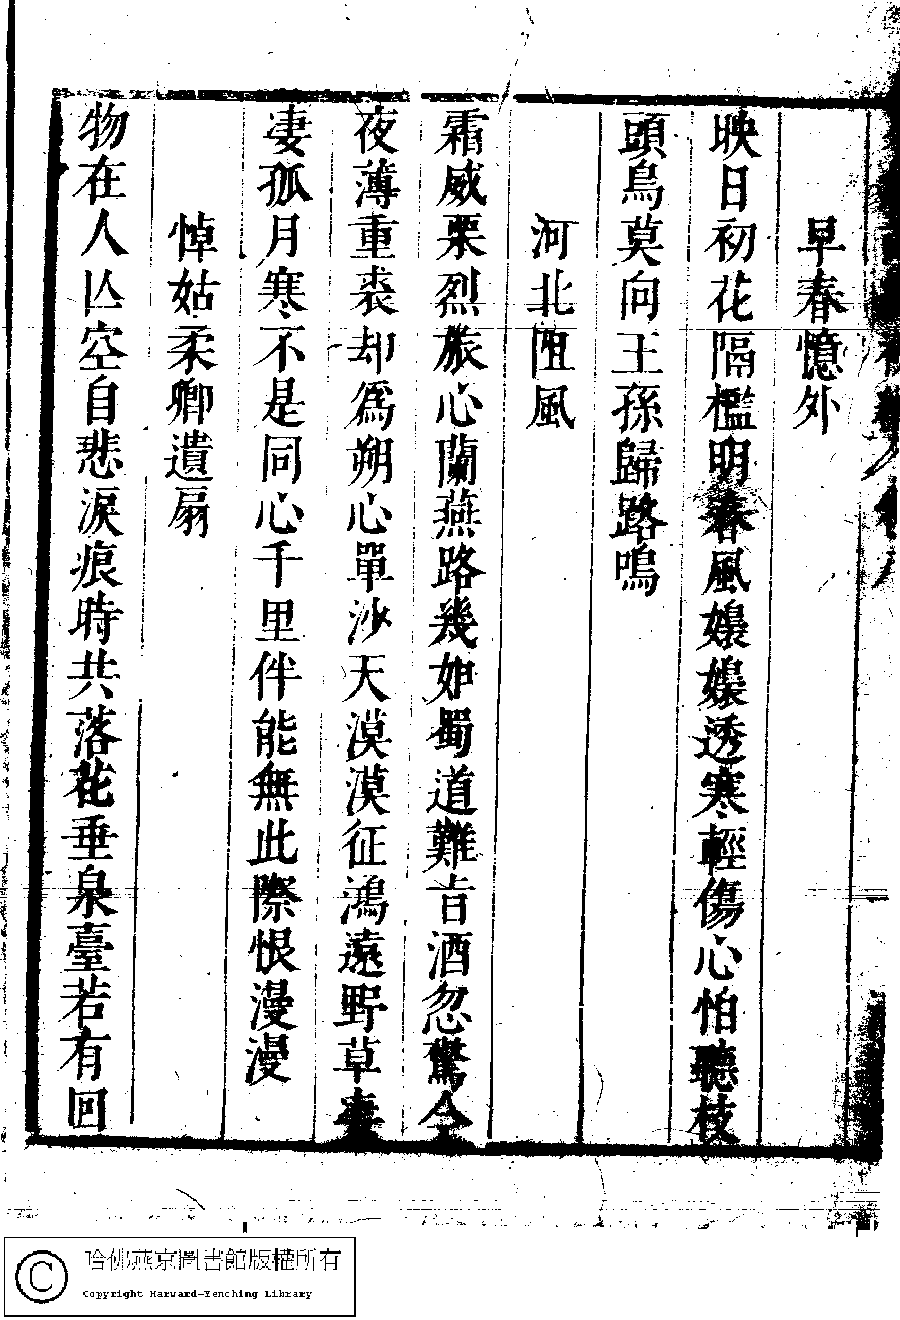 早春憶外
映日初花隔檻明春風嬝嬝透寒輕傷心怕聽枝
頭鳥莫向王孫歸路鳴
河北阻風
霜威栗烈旅心蘭燕路幾如蜀道難旨酒忽驚今
夜薄重裘却爲朔心單沙天漠漠征鴻遠野草凄
凄孤月寒不是同心千里伴能無此際恨漫漫
悼姑柔卿遺扇
物在人亾空自悲淚痕時共落花垂泉臺若有回
哈佛燕京圖書館版權所有
Copyright Harvard-Yenching Library